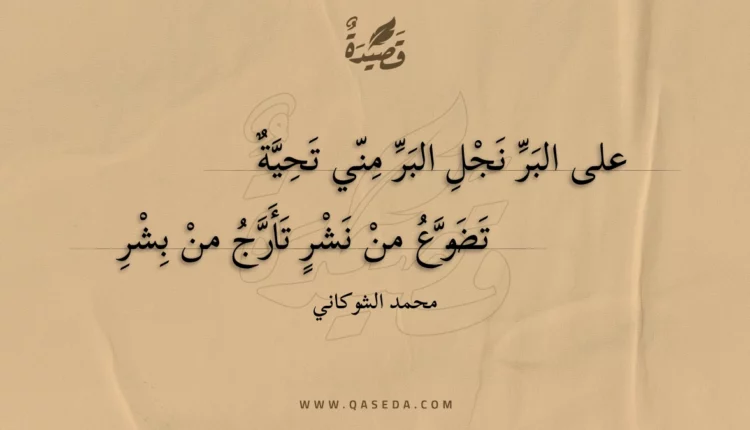 قَصِيدَةٌ
على البَرِّ نَجْلِ البَرِّ مِنّي تَحِيَّةٌ
تَضَوَّعُ منْ نَشْرٍ تَأَرَّجُ منْ بِشْرِ
محمد الشوكاني
WWW.QASEDA.COM